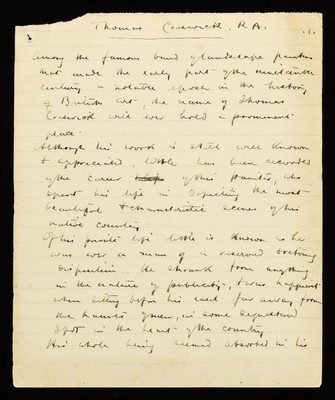 Thomas Creswick. R.A. .1.
Among the famous band of landscape painters
that made the early part of the nineteenth
century a notable epoch in the history
of British Art, the name of Thomas
Creswick will ever hold a prominent
place.
Although his work is still well known
& appreciated, little has been recorded
of the career of this painter, who
spent his life in depicting the most
beautiful & characteristic scenes of his
native country
Of his private life little is known as he
was ever a man of a reserved & retiring
disposition. He shrank from anything
in the nature of publicity, & was happiest
when sitting before his easel far away from
the haunts of men, in some sequestered
spot in the heart of the country
His whole being seemed absorbed in his